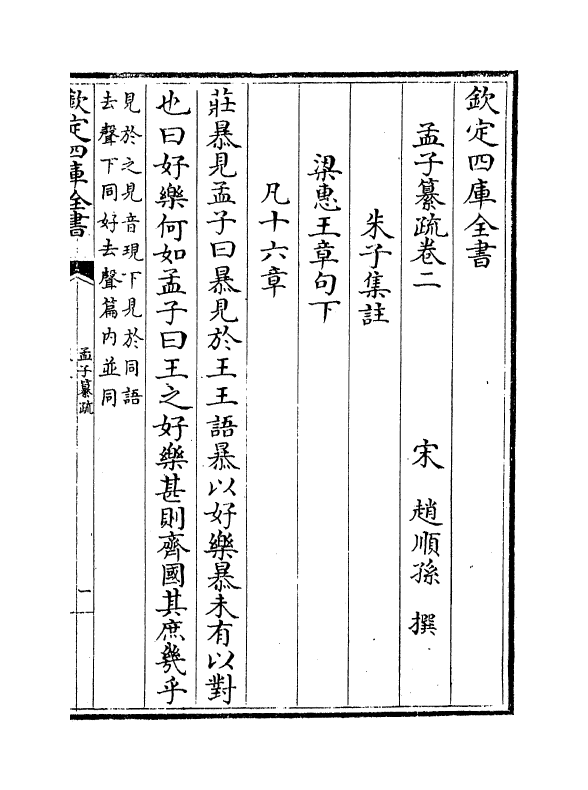 欽定四庫全書
孟子纂疏卷二　宋　趙順孫　撰
朱子集註
梁惠王章句下
凡十六章
莊暴見孟子曰暴見於王王語暴以好樂暴未有以對
也曰好樂何如孟子曰王之好樂甚則齊國其庶幾乎
見於之見音現下見於同語
去聲下同好去聲篇內並同
欽定四庫全書
孟子纂疏
一